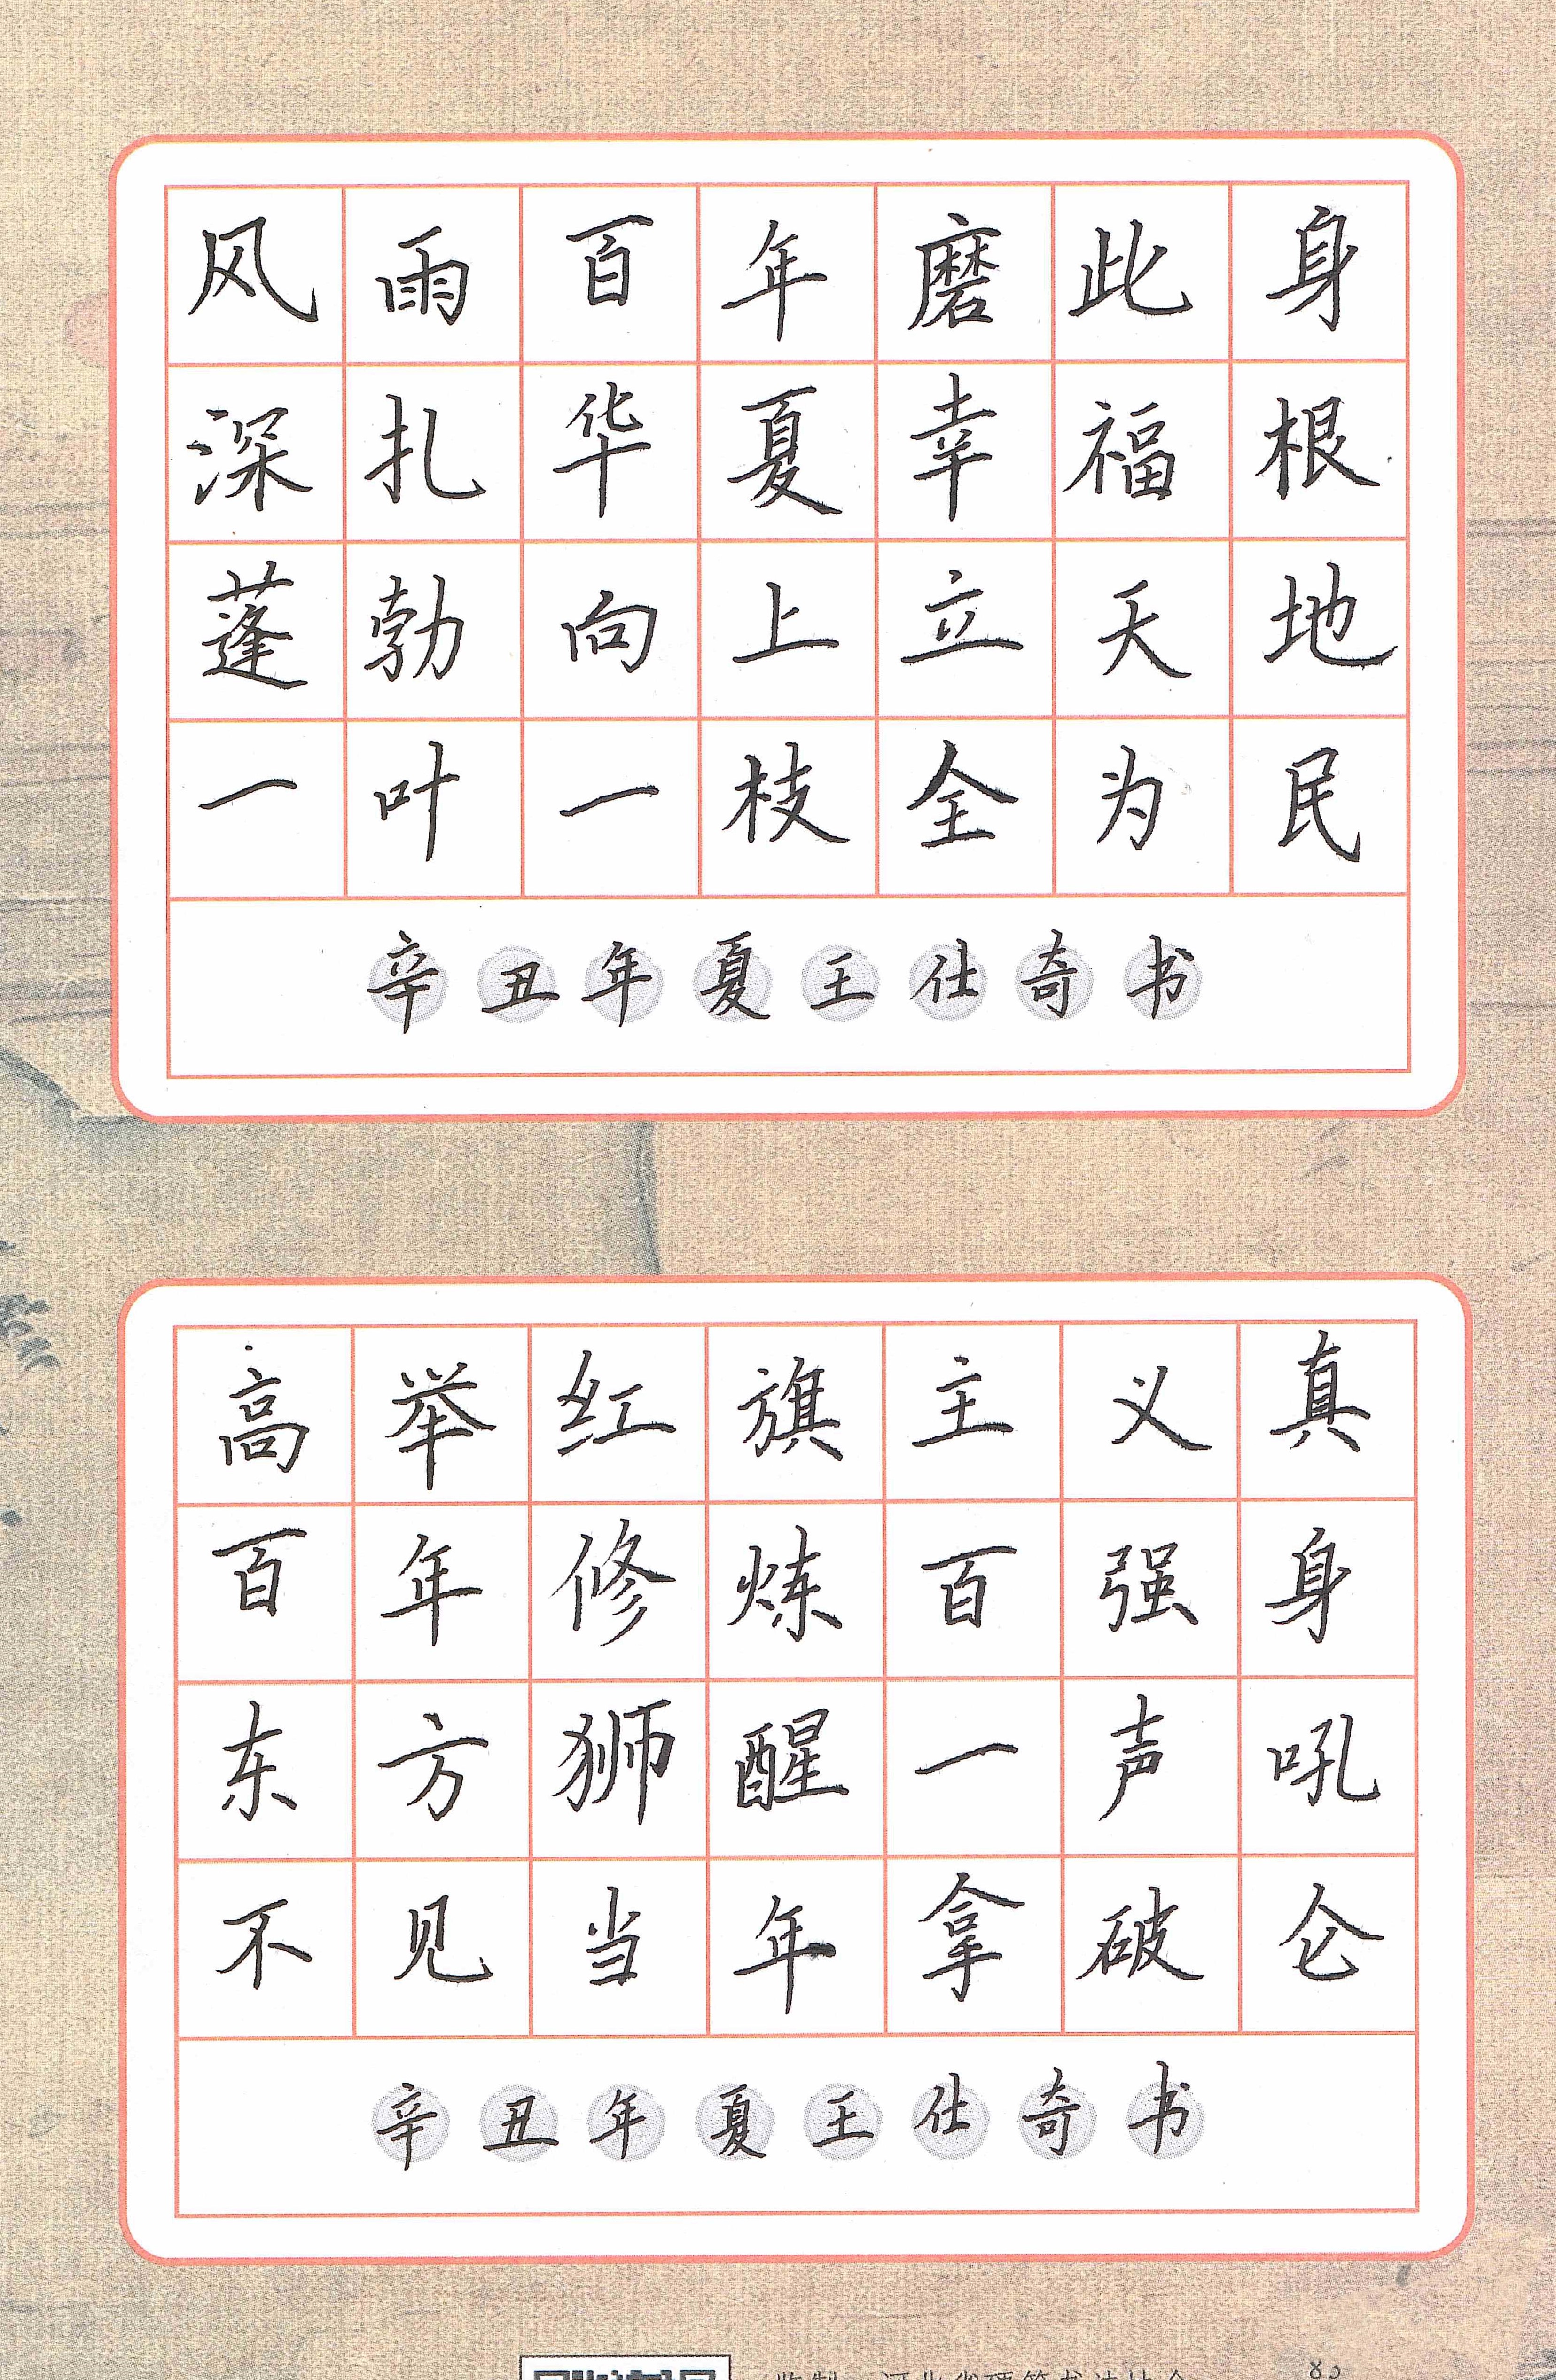 风雨百年磨此身
深扎华夏幸福根
蓬勃向上立天地
一叶一枝全为民
辛丑年夏王仕奇书
高举红旗主义真
百年修炼百强身
东方狮醒一声吼
不见当年拿破仑
辛丑年夏王仕奇书